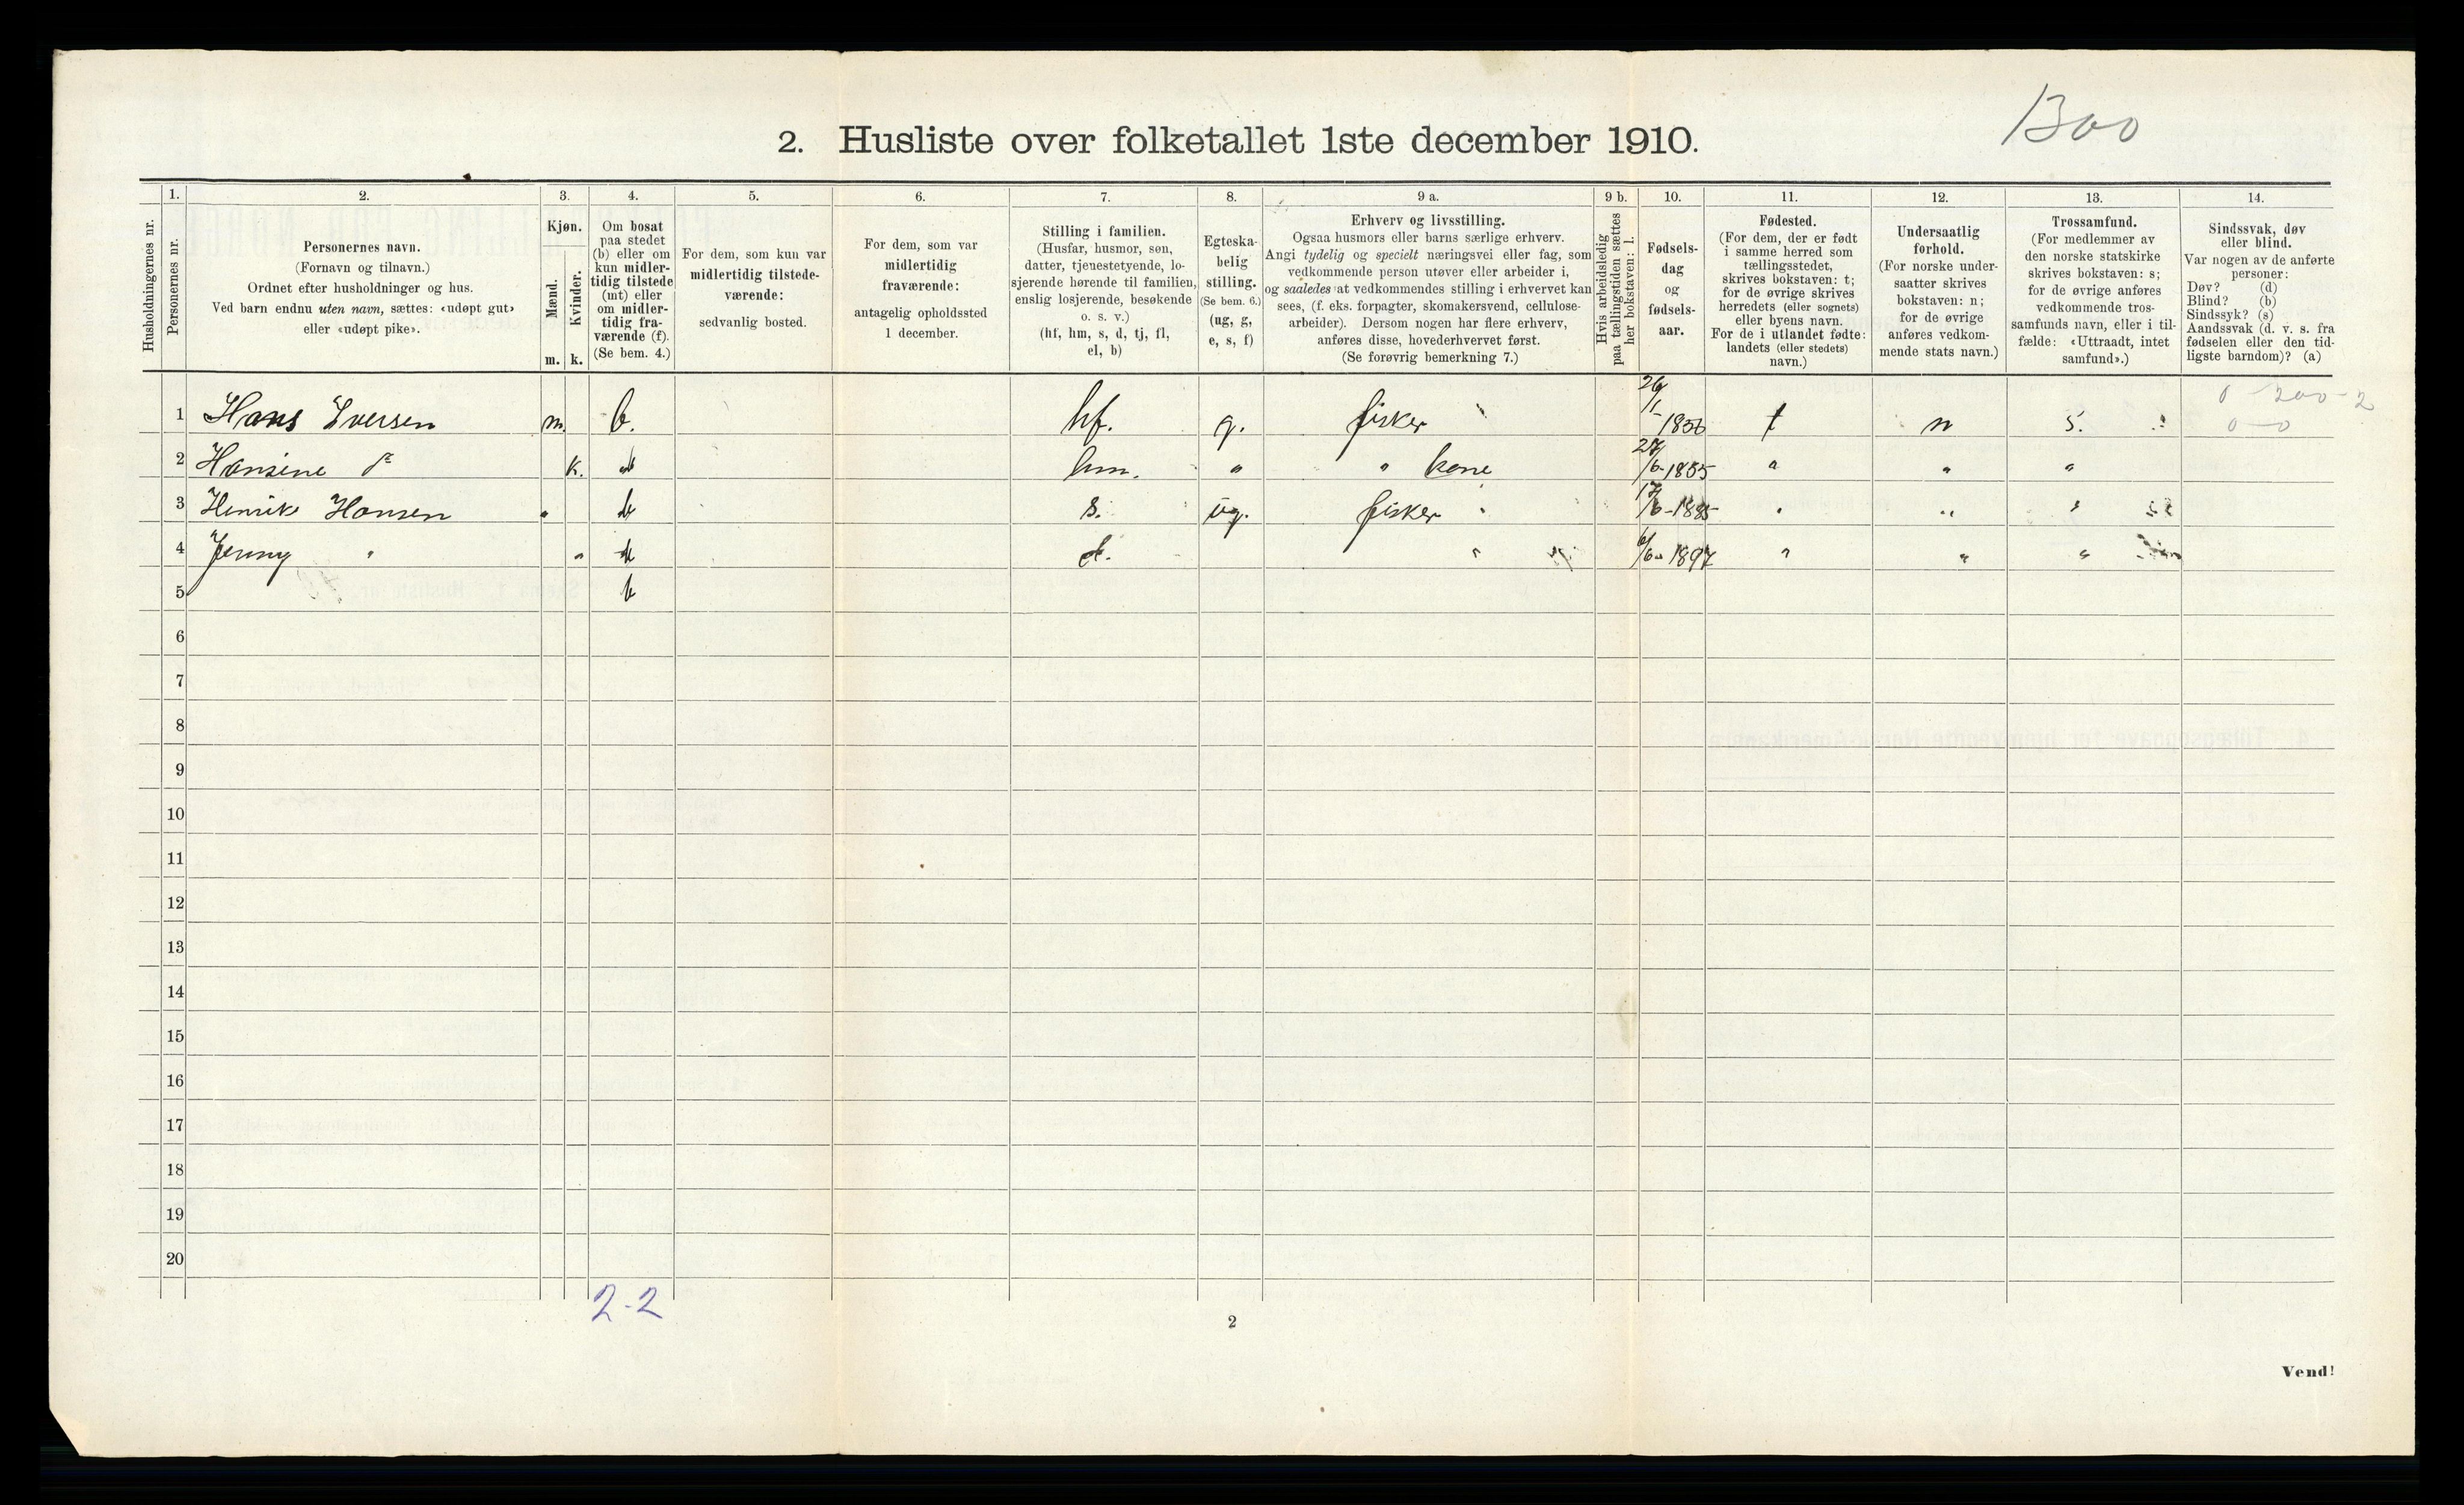 Boo
2. Husliste over folketallet 1ste december 1910.
Husholdningernes nr.
1. Personernes nr.
2. Personernes navn. (Fornavn og tilnavn.) Ordnet efter husholdninger og hus. Ved barn endnu uten navn, sættes: «udøpt gut» eller «udøpt pike».
3. Kjøn. Mænd. m. Kvinder. k.
4. Om bosat paa stedet (b) eller om kun midlertidig tilstede (mt) eller om midlertidig fraværende (f). (Se bem. 4.)
5. For dem, som kun var midlertidig tilstedeværende: sedvanlig bosted.
6. For dem, som var midlertidig fraværende: antagelig opholdssted 1 december.
7. Stilling i familien. (Husfar, husmor, søn, datter, tjenestetyende, losjerende hørende til familien, enslig losjerende, besøkende o. s. v.) (hf, hm, s, d, tj, fl, el, b)
8. Egteskabelig stilling. (Se bem. 6.) (ug, g, e, s, f)
9 a. Erhverv og livsstilling. Ogsaa husmors eller barns særlige erhverv. Angi tydelig og specielt næringsvei eller fag, som vedkommende person utøver eller arbeider i, og saaledes at vedkommendes stilling i erhvervet kan sees, (f. eks. forpagter, skomakersvend, cellulosearbeider). Dersom nogen har flere erhverv, anføres disse, hovederhvervet først. (Se forøvrig bemerkning 7.)
9 b. Hvis arbeidsledig paa tællingstiden sættes her bokstaven: l.
10. Fødselsdag og fødselsaar.
11. Fødested. (For dem, der er født i samme herred som tællingsstedet, skrives bokstaven: t; for de øvrige skrives herredets (eller sognets) eller byens navn. For de i utlandet fødte: landets (eller stedets) navn.)
12. Undersaatlig forhold. (For norske undersaatter skrives bokstaven: n; for de øvrige anføres vedkommende stats navn.)
13. Trossamfund. (For medlemmer av den norske statskirke skrives bokstaven: s; for de øvrige anføres vedkommende trossamfunds navn, eller i tilfælde: «Uttraadt, intet samfund».)
14. Sindssvak, døv eller blind. Var nogen av de anførte personer: Døv? (d) Blind? (b) Sindssyk? (s) Aandssvak (d. v. s. fra fødselen eller den tidligste barndom)? (a)
0 - 200 - 2
1 Hans Iversen m. b. hf. g. fisker 26/1 - 1856 t n s. 0 - 0
2 Hansine k. b hm. " " kone /6-1855 " " "
3 Henrik Hansen " b s. ug. fisker 17/6-1885 " " "
4 Jenny " " b d. " 6/6-1897 " " "
5 b
6
7
8
9
10
11
12
13
14
15
16
17
18
19
20
2-2
2
Vend!